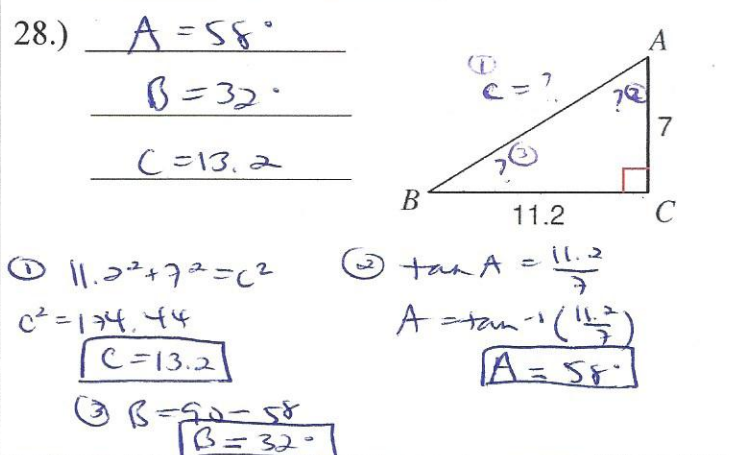 28.) A = 58°
B = 32°
C = 13.2
A
① c = ?
? ②
7
? ③
B
11.2
C
① 11.2² + 7² = c²
c² = 174.44
C = 13.2
② tan A = 11.2/7
A = tan⁻¹ (11.2/7)
A = 58°
③ B = 90 - 58
B = 32°